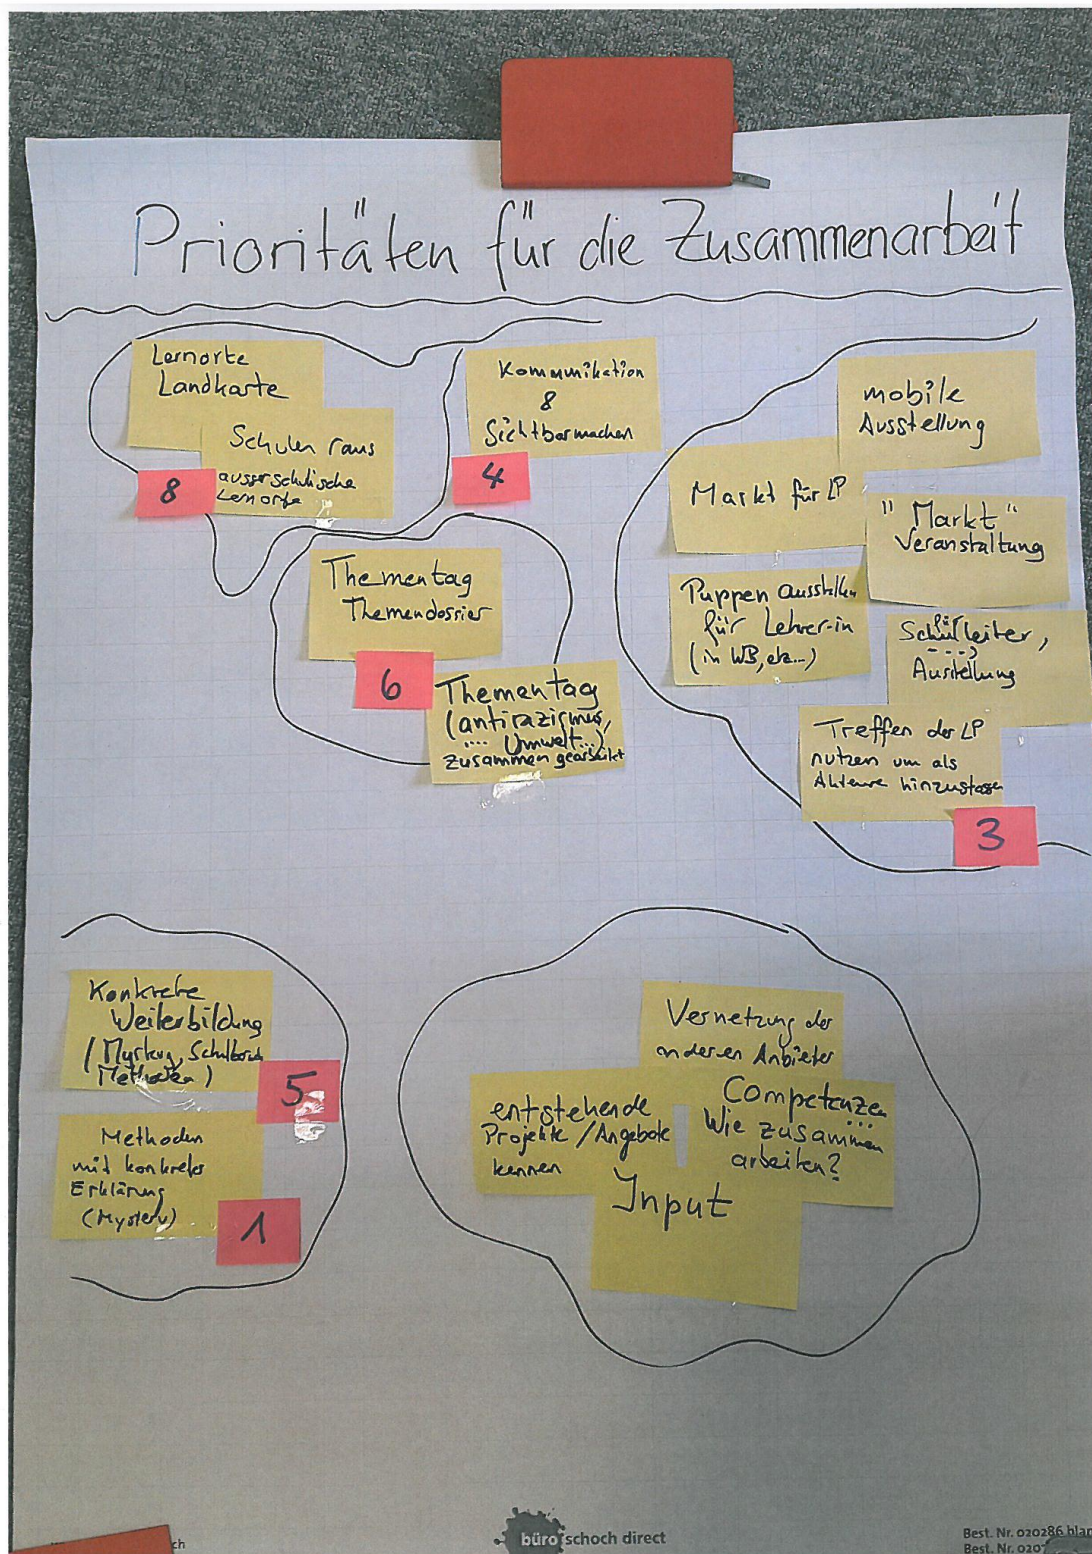 Prioritäten für die Zusammenarbeit
Lernorte
Landkarte
Schulen raus
ausserschulische
Lernorte
8
Kommunikation
&
Sichtbarmachen
4
Thementag
Themendossier
6
Thementag
(antirazismus,
... Umwelt...),
zusammen gearbeitet
mobile
Ausstellung
Markt für LP
"Markt"
Veranstaltung
Puppen ausstellen
für Lehrer-in
(in WB, etc...)
für
Schulleiter,
...,
Austellung
Treffen der LP
nutzen um als
Akteure hinzustossen
3
Konkrete
Weiterbildung
Methoden)
5
Methoden
mit konkreter
Erklärung
(Mystery)
1
Vernetzung der
anderen Anbieter
entstehende
Projekte / Angebote
kennen
Competenzen
...
Wie zusammen
arbeiten?
Input
ch
büro schoch direct
Best. Nr. 020286 blan
Best. Nr. 020